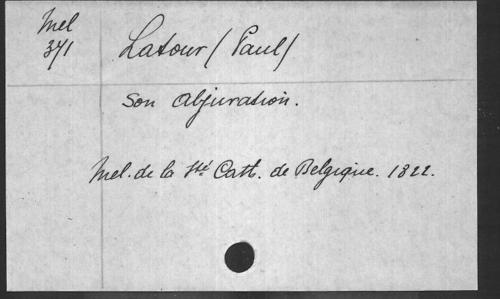 Mel
371
Latour (Paul)
Son abjuration.
Mel. de la Sté Cath. de Belgique. 1822.